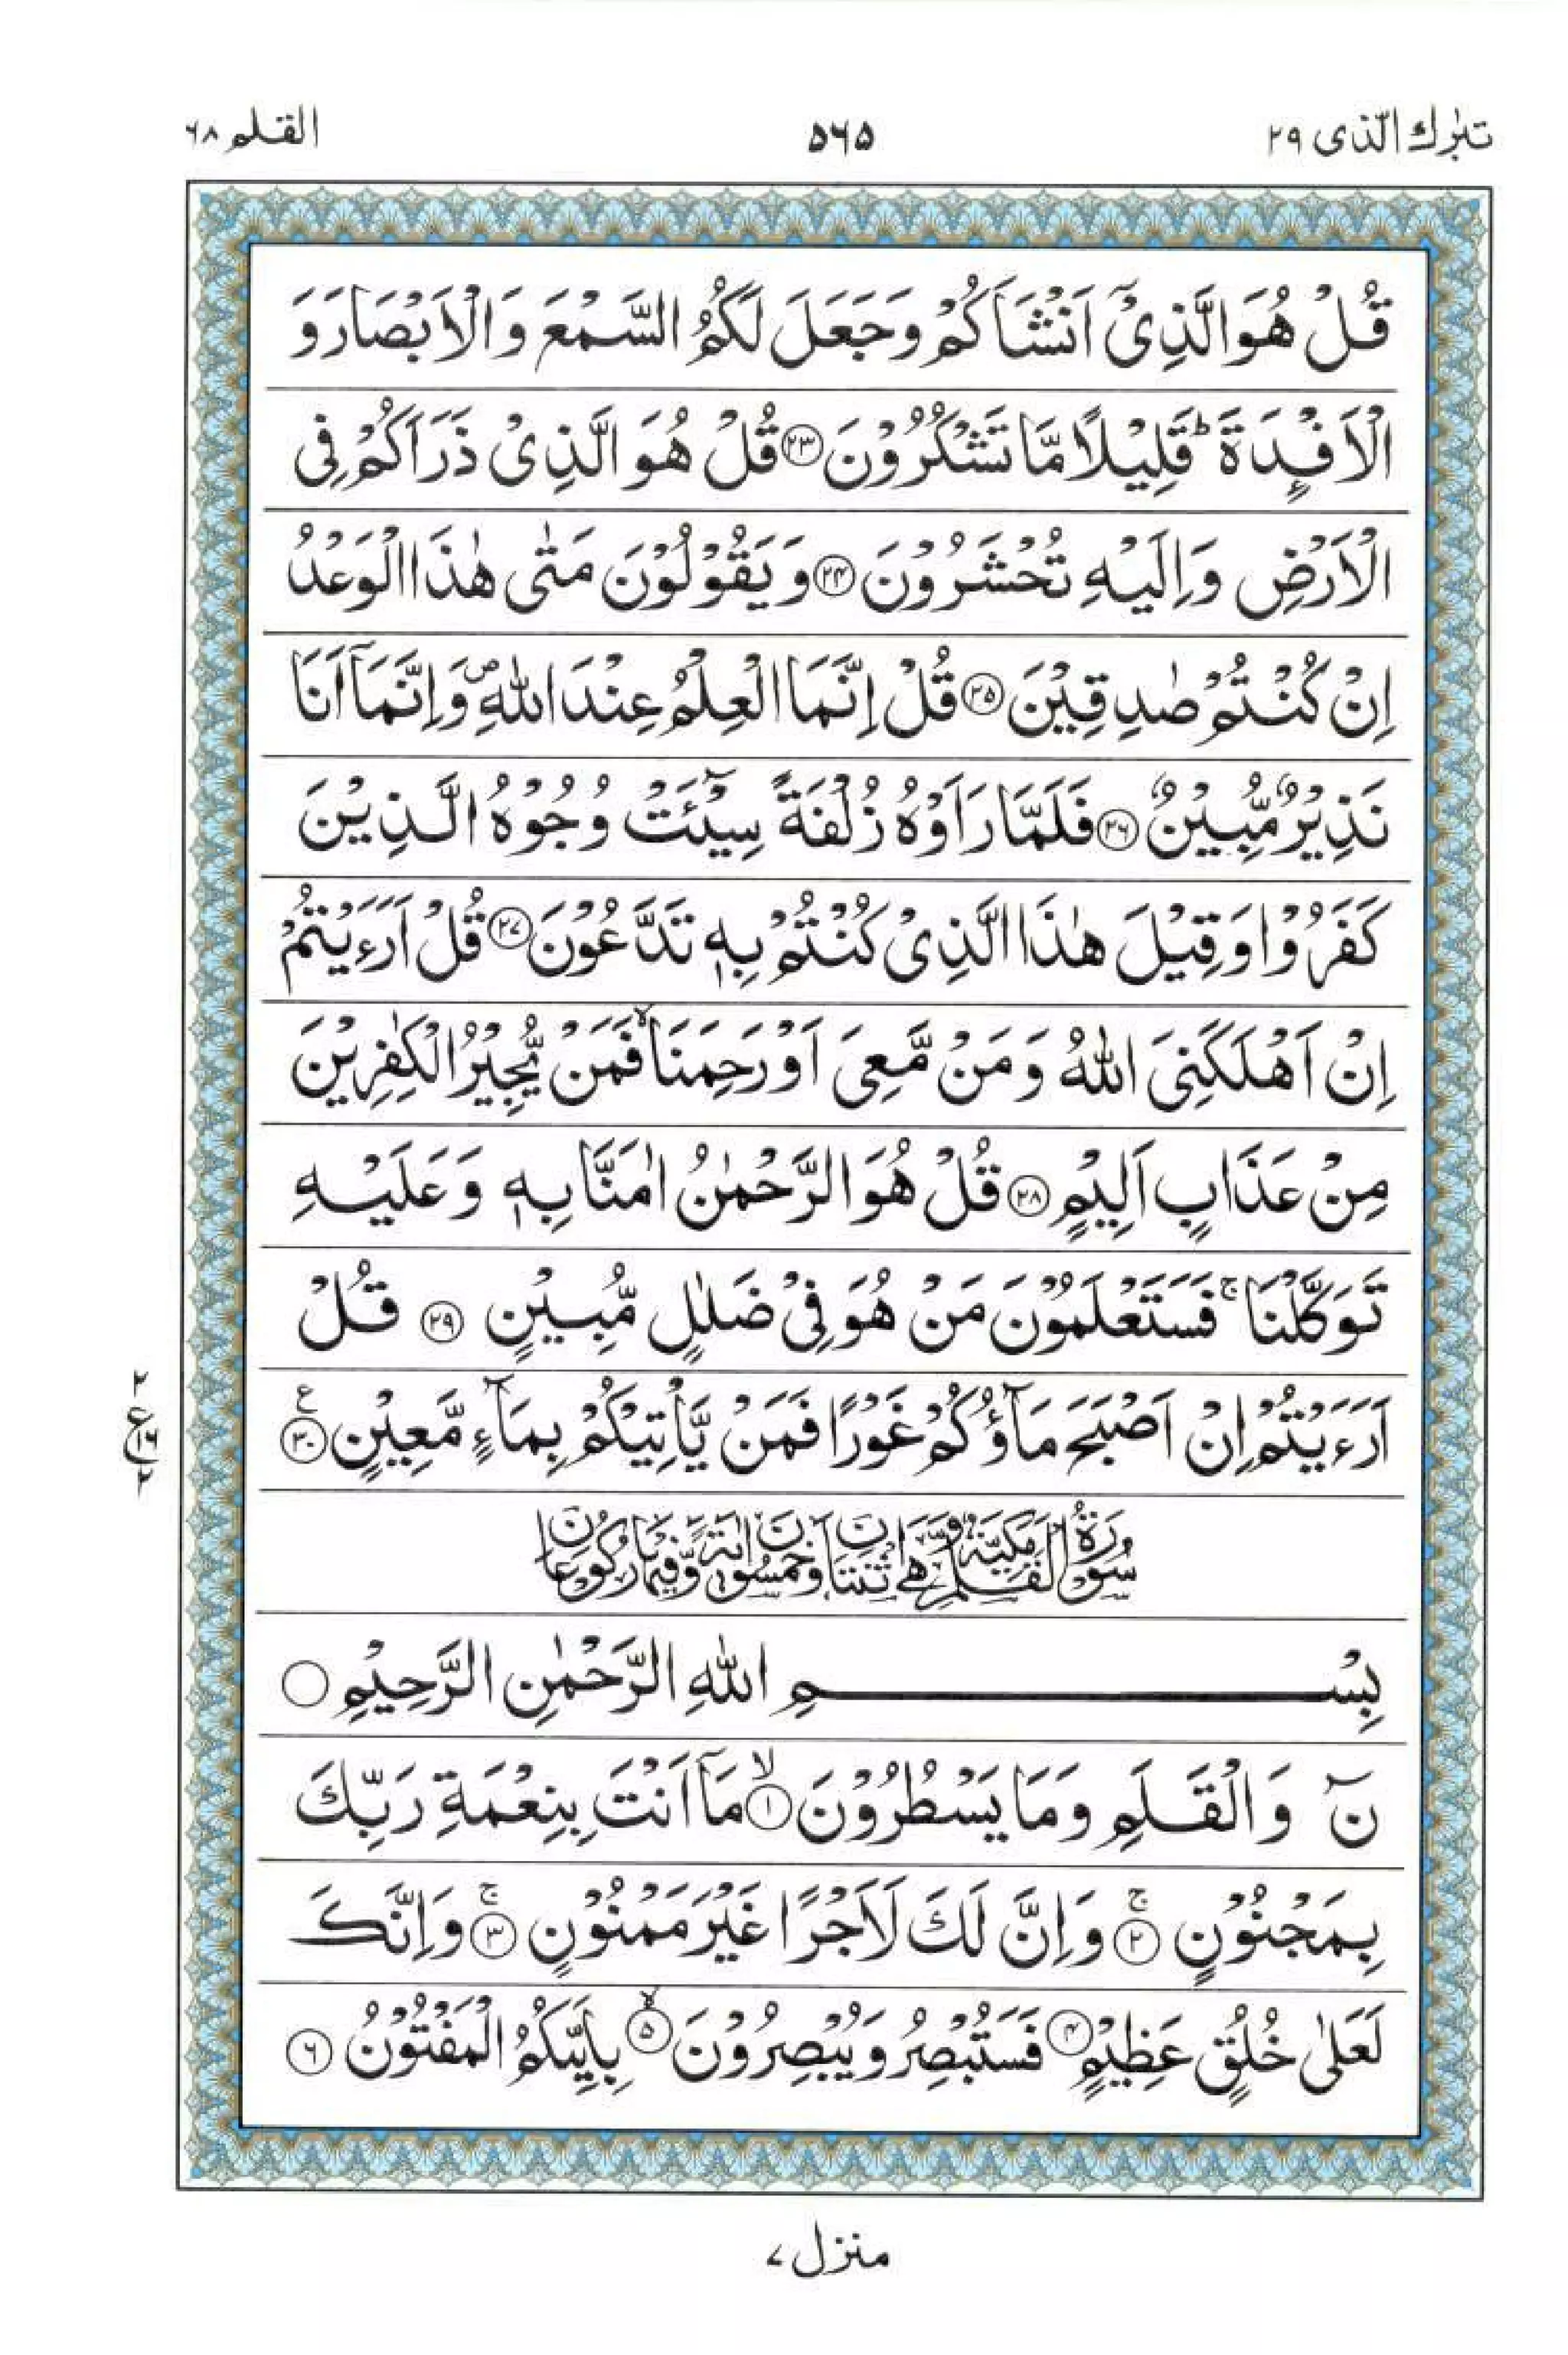 تبٰرك الّذی ٢٩
٥٦٥
القلم ٦٨
قُلْ هُوَ الَّذِیْۤ اَنْشَاَكُمْ وَجَعَلَ لَكُمُ السَّمْعَ وَالْاَبْصَارَ وَ
الْاَفْـِٕدَةَ ؕ قَلِیْلًا مَّا تَشْكُرُوْنَ ٢٣ قُلْ هُوَ الَّذِیْ ذَرَاَكُمْ فِی
الْاَرْضِ وَاِلَیْهِ تُحْشَرُوْنَ ٢٤ وَ یَقُوْلُوْنَ مَتٰی هٰذَا الْوَعْدُ
اِنْ كُنْتُمْ صٰدِقِیْنَ ٢٥ قُلْ اِنَّمَا الْعِلْمُ عِنْدَ اللّٰهِ ۪ وَاِنَّمَاۤ اَنَا
نَذِیْرٌ مُّبِیْنٌ ٢٦ فَلَمَّا رَاَوْهُ زُلْفَةً سِیْٓـَٔتْ وُجُوْهُ الَّذِیْنَ
كَفَرُوْا وَقِیْلَ هٰذَا الَّذِیْ كُنْتُمْ بِهٖ تَدَّعُوْنَ ٢٧ قُلْ اَرَءَیْتُمْ
اِنْ اَهْلَكَنِیَ اللّٰهُ وَ مَنْ مَّعِیَ اَوْ رَحِمَنَا ۙ فَمَنْ یُّجِیْرُ الْكٰفِرِیْنَ
مِنْ عَذَابٍ اَلِیْمٍ ٢٨ قُلْ هُوَ الرَّحْمٰنُ اٰمَنَّا بِهٖ وَعَلَیْهِ
تَوَكَّلْنَا ۚ فَسَتَعْلَمُوْنَ مَنْ هُوَ فِیْ ضَلٰلٍ مُّبِیْنٍ ٢٩ قُلْ
اَرَءَیْتُمْ اِنْ اَصْبَحَ مَآؤُكُمْ غَوْرًا فَمَنْ یَّاْتِیْكُمْ بِمَآءٍ مَّعِیْنٍ ٣٠ ع
٢
ع
٢
سُوْرَةُ الْقَلَمِ مَكِّیَّةٌ وَّهِیَ اثْنَتَانِ وَخَمْسُوْنَ اٰیَةً وَّفِیْهَا رُكُوْعَانِ
بِسْمِ اللّٰهِ الرَّحْمٰنِ الرَّحِیْمِ
نٓ وَالْقَلَمِ وَمَا یَسْطُرُوْنَ ۙ ١ مَاۤ اَنْتَ بِنِعْمَةِ رَبِّكَ
بِمَجْنُوْنٍ ۚ ٢ وَاِنَّ لَكَ لَاَجْرًا غَیْرَ مَمْنُوْنٍ ۚ ٣ وَاِنَّكَ
لَعَلٰی خُلُقٍ عَظِیْمٍ ٤ فَسَتُبْصِرُ وَیُبْصِرُوْنَ ۙ ٥ بِاَیِّىكُمُ الْمَفْتُوْنُ ٦
منزل ٧